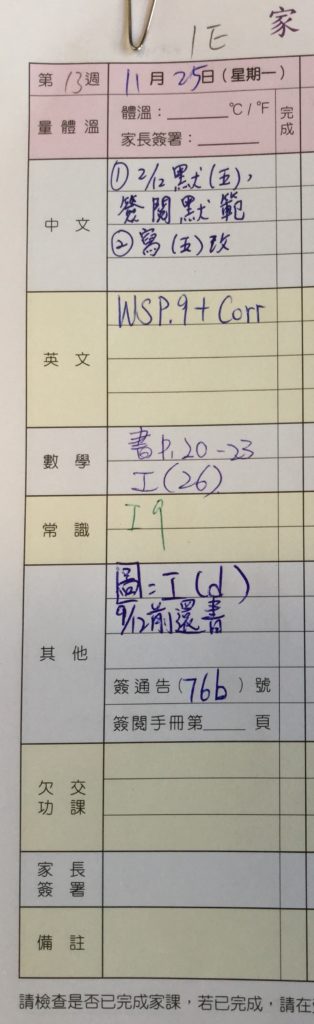 1E 家
第 13 週 11 月 25 日 (星期一)
量體溫 體溫：______ °C / °F 完成
家長簽署：______
中文 ① 2/12 默(五)，
簽閱默範
② 寫(五)改
英文 WSP.9 + Corr
數學 書P.20-23
工(26)
常識 工9
其他 圖=工(d)
9/12前還書
簽通告(76b)號
簽閱手冊第____頁
欠交功課
家長簽署
備註
請檢查是否已完成家課，若已完成，請在